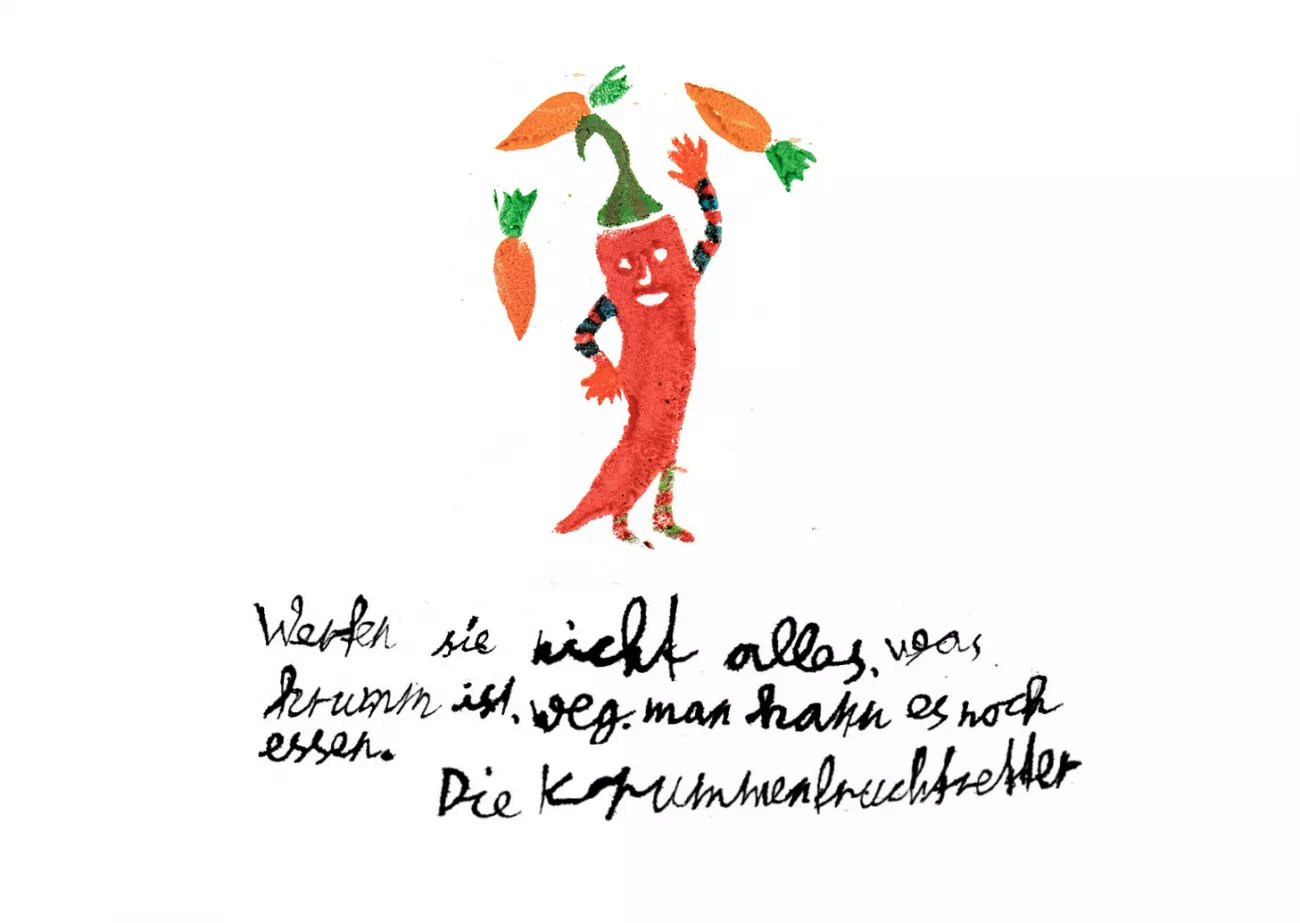 Werfen sie nicht alles, was
krumm ist, weg. man kann es noch
essen.
Die Krummenfruchtretter